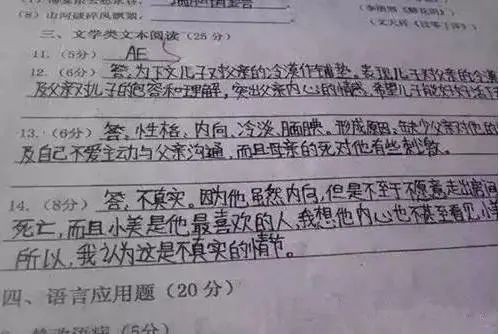 (8) 山河破碎风飘絮,
(文天祥《过零丁洋》)
三、文学类文本阅读(25分)
11.(5分) AE
12.(6分) 答,为下文儿子对父亲的冷漠作铺垫。表现儿子对父亲的冷漠
及父亲对儿子的包容和理解,突出父亲内心的情感,希望儿子能
13.(6分) 答、性格、内向、冷淡、腼腆。形成原因、缺少父亲对他的
及自己不爱主动与父亲沟通,而且母亲的死对他有些刺激。
14.(8分) 答,不真实。因为他虽然内向,但是不至于不愿意走出
死亡,而且小美是他最喜欢的人,我想他内心也不甚至看见小美
所以,我认为这是不真实的情节。
四、语言应用题(20分)
(5分)